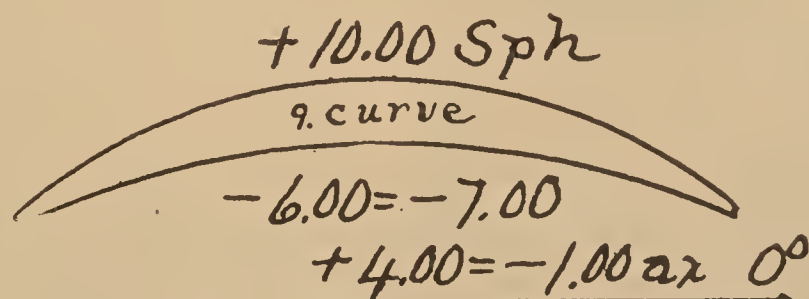 +10.00 Sph
9. curve
-6.00=-7.00
+4.00=-1.00 ax 0°